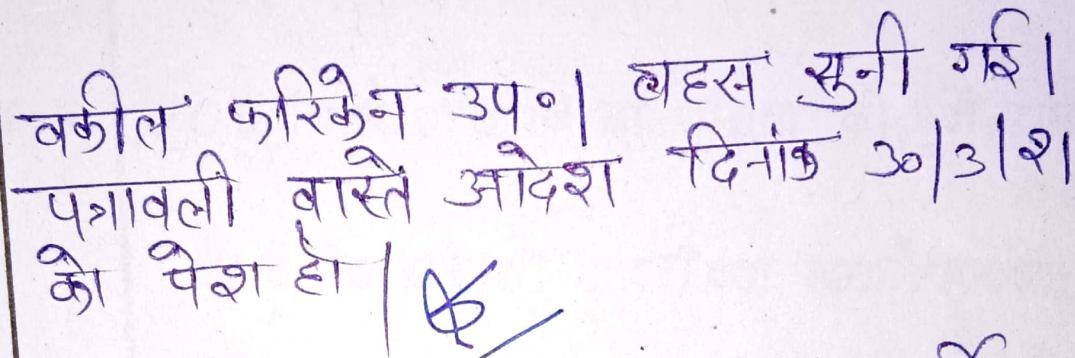 वकील फरिकेन उप०। बहस सुनी गई।
पत्रावली वास्ते आदेश दिनांक 30/3/21
को पेश हो।